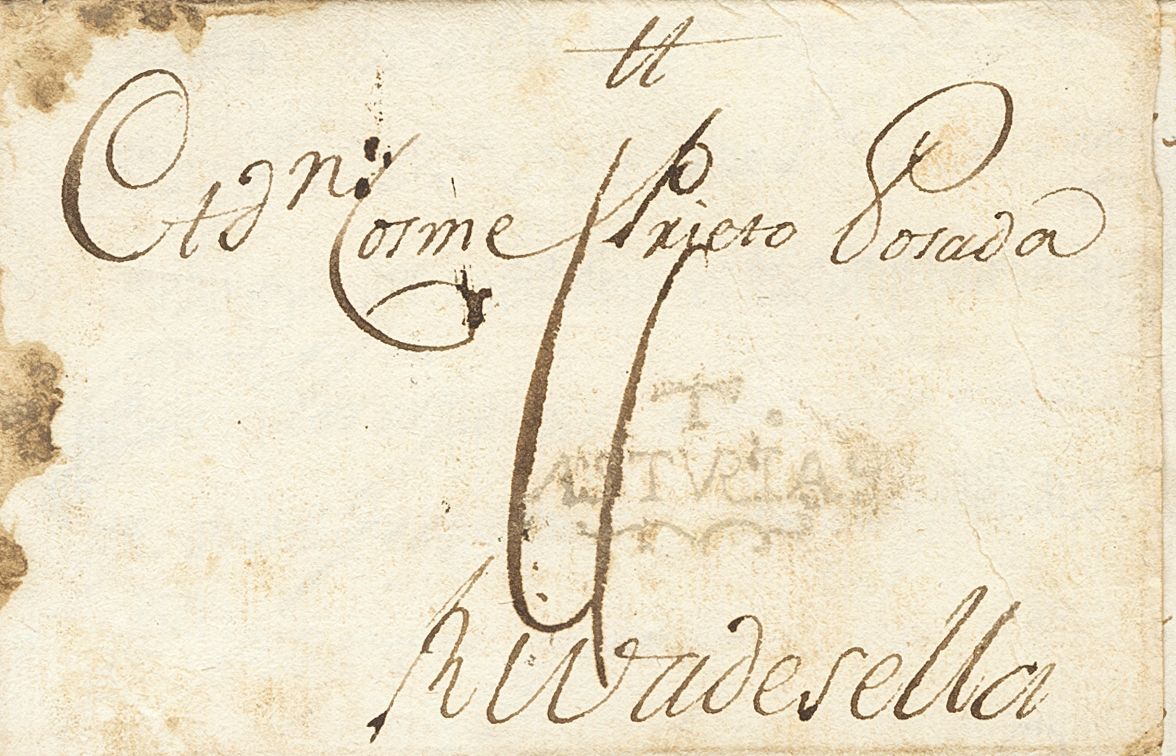 A dn Cosme Prieto Posada
T.
ASTVRIAS
Rivadesella